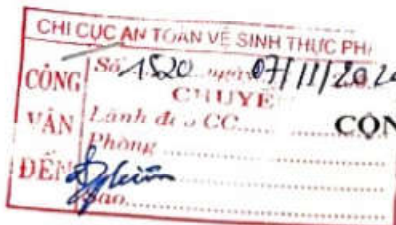 CHI CỤC AN TOÀN VỆ SINH THỰC PH
CÔNG VĂN ĐẾN
Số 1520 ngày 07/11/202
CHUYỂ
Lãnh đạo CC
CÔN
Phòng
Sao